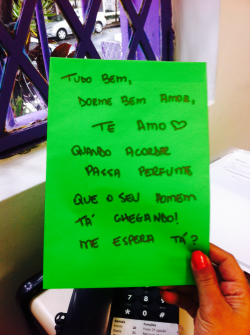 TUDO BEM,
DORME BEM AMOR,
TE AMO ♡
QUANDO ACORDAR
PASSA PERFUME
QUE O SEU HOMEM
TÁ CHEGANDO!
ME ESPERA TÁ?
7 8 9
0 #